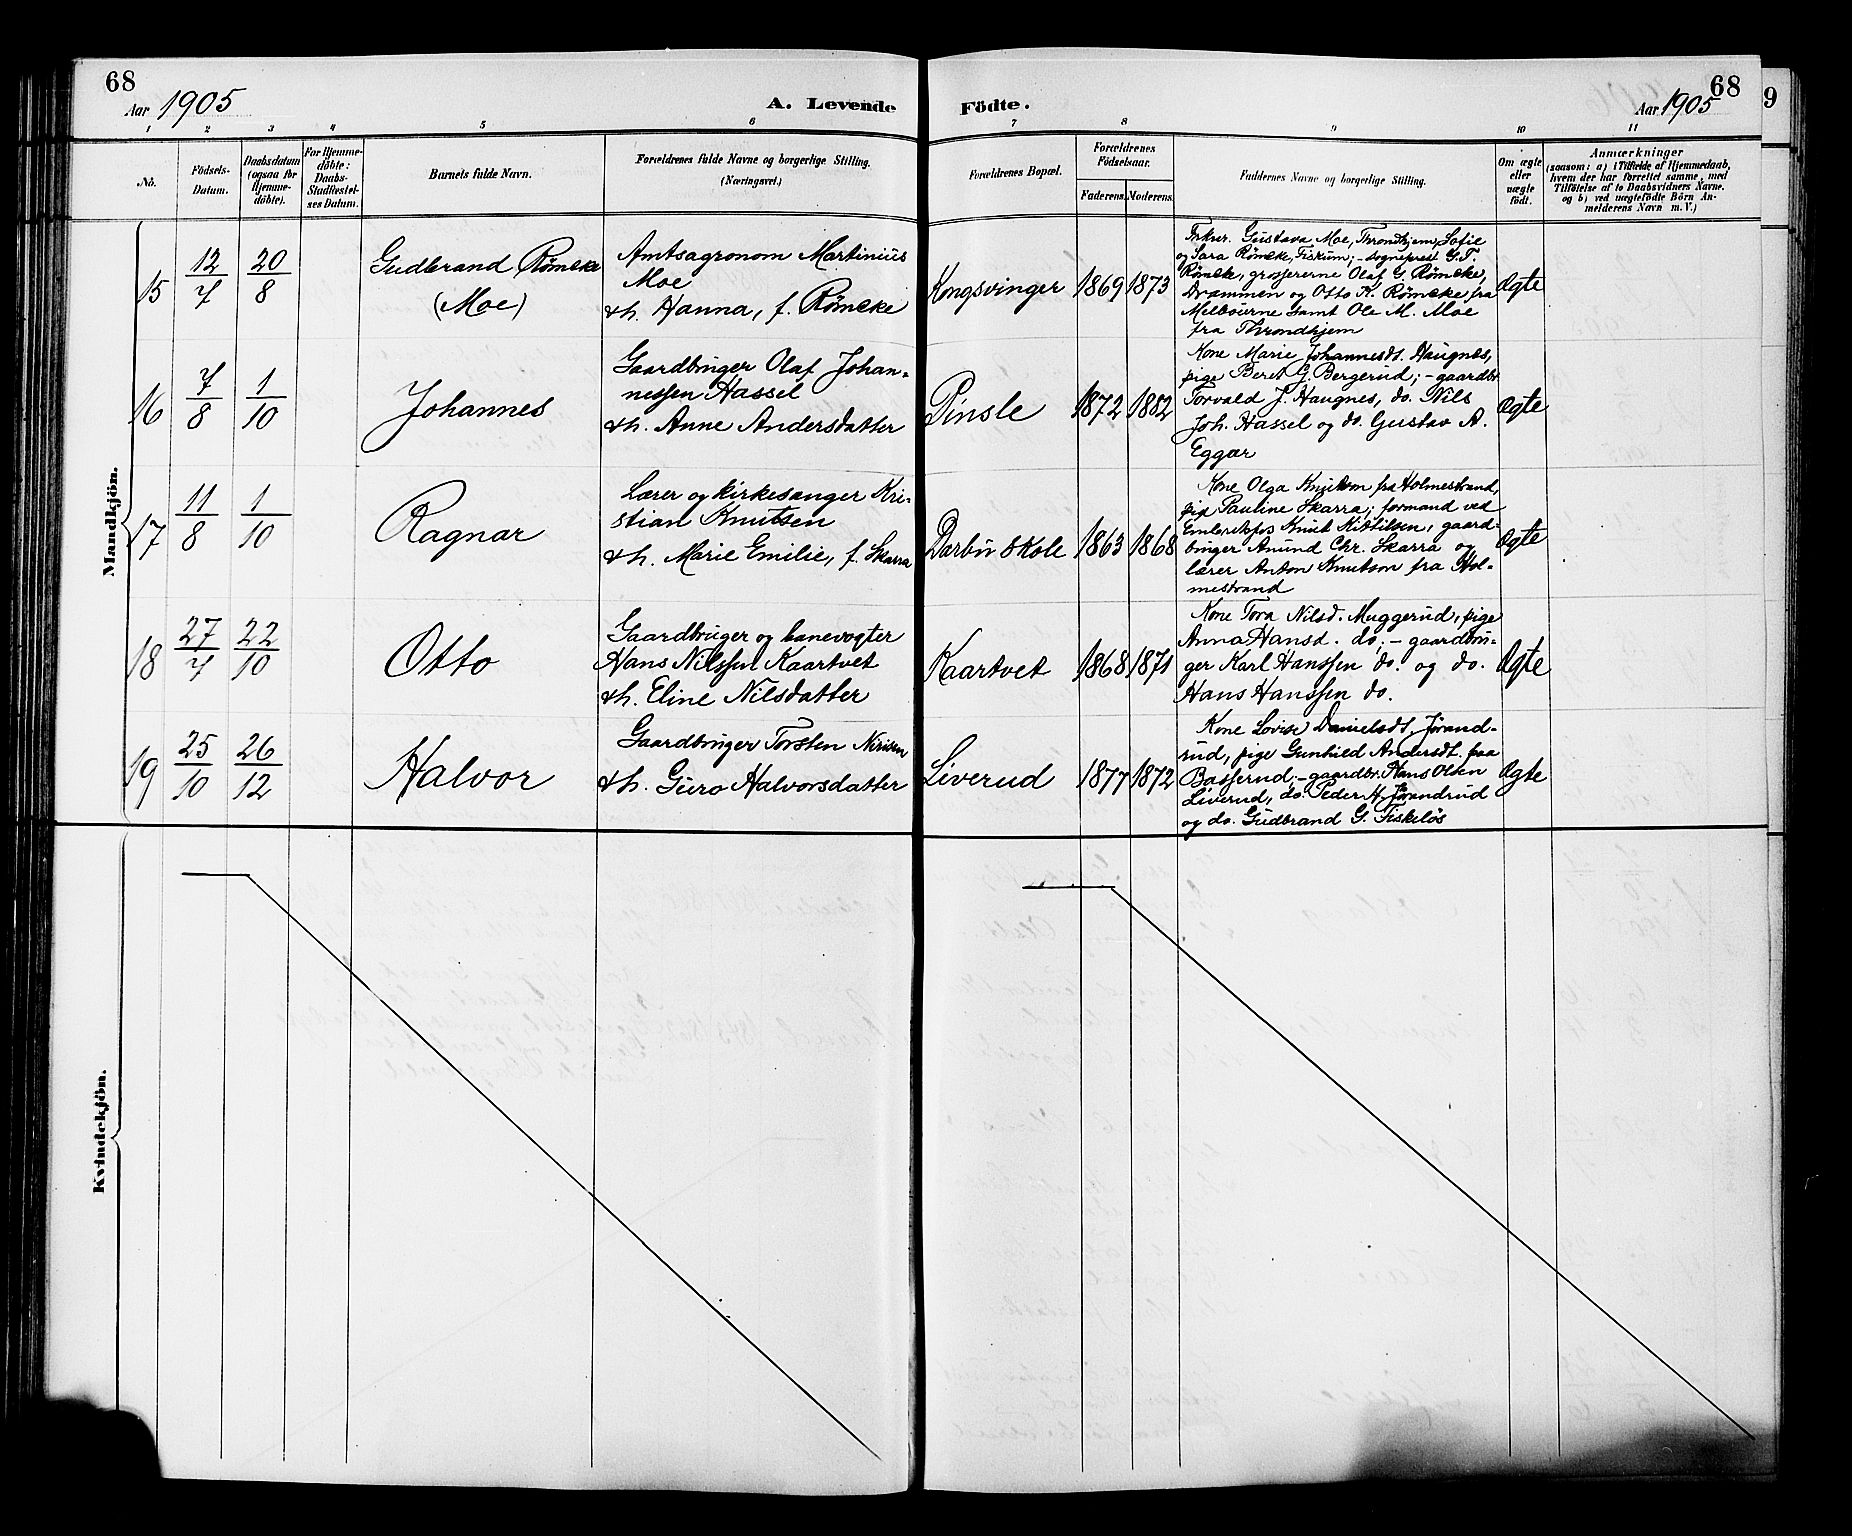 68
Aar 1905
A. Levende
Födte.
68
Aar 1905
9
1 2 3 4 5 6 7 8 9 10 11
No.
Födsels-
Datum.
Daabsdatum
(ogsaa for
Hjemme-
döbte).
For Hjemme-
döbte:
Daabs-
Stadfæstel-
ses Datum.
Barnets fulde Navn.
Forældrenes fulde Navne og borgerlige Stilling.
(Næringsvei.)
Forældrenes Bopæl.
Forældrenes
Födselsaar.
Faderens. Moderens.
Faddernes Navne og borgerlige Stilling.
Om ægte
eller
uægte
födt.
Anmærkninger
(saasom: a) i Tilfælde af Hjemmedaab,
hvem der har forrettet samme, med
Tilföielse af to Daabsvidners Navne.
og b) ved uægtefödte Börn An-
melderens Navn m. V.)
Mandkjön.
15
12/7
20/8
Gudbrand Römcke
(Moe)
Amtsagronom Martinius
Moe
& h. Hanna, f. Römcke
Kongsvinger
1869 1873
Frkrer. Gustava Moe, Throndhjem, Sofie
og Sara Römcke, Fiskum; – sogneprest G. T.
Römcke, grossererne Olaf G. Römcke,
Drammen og Otto K. Römcke fra
Melbourne samt Ole M. Moe
fra Throndhjem
Ægte
16
7/8
1/10
Johannes
Gaardbruger Olaf Johan-
nessen Hassel
& h. Anne Andersdatter
Pinsle
1872 1882
Kone Marie Johannesdt. Haugnes,
pige Beret G. Bergerud; – gaardbr.
Torvald J. Haugnes, do. Nils
Joh. Hassel og do. Gustav A.
Eggar
Ægte
17
11/8
1/10
Ragnar
Lærer og kirkesanger Kri-
stian Knutsen
& h. Marie Emilie, f. Skarra
Darbu skole
1863 1868
Kone Olga Knutson fra Holmestrand,
pige Pauline Skarra; formand ved
Knut Kittilsen, gaard-
bruger Anund Chr. Skarra og
lærer Anton Knutson fra Hol-
mestrand
Ægte
18
27/7
22/10
Otto
Gaardbruger og banevogter
Hans Nilssen Kaartvet
& h. Eline Nilsdatter
Kaartvet
1868 1871
Kone Tora Nilsd. Muggerud, pige
Anna Hansd. do; – gaardbru-
ger Karl Hanssen do. og do.
Hans Hanssen do.
Ægte
19
25/10
26/12
Halvor
Gaardbruger Torsten Nirisen
& h. Guro Halvorsdatter
Liverud
1877 1872
Kone Lovise Danielsdt. Jörand-
rud, pige Gunhild Andersdt. paa
Basserud; – gaardbr. Hans Olsen
Liverud, do. Peder H. Jörandrud
og do. Gudbrand G. Fiskelös
Ægte
Kvindekjön.